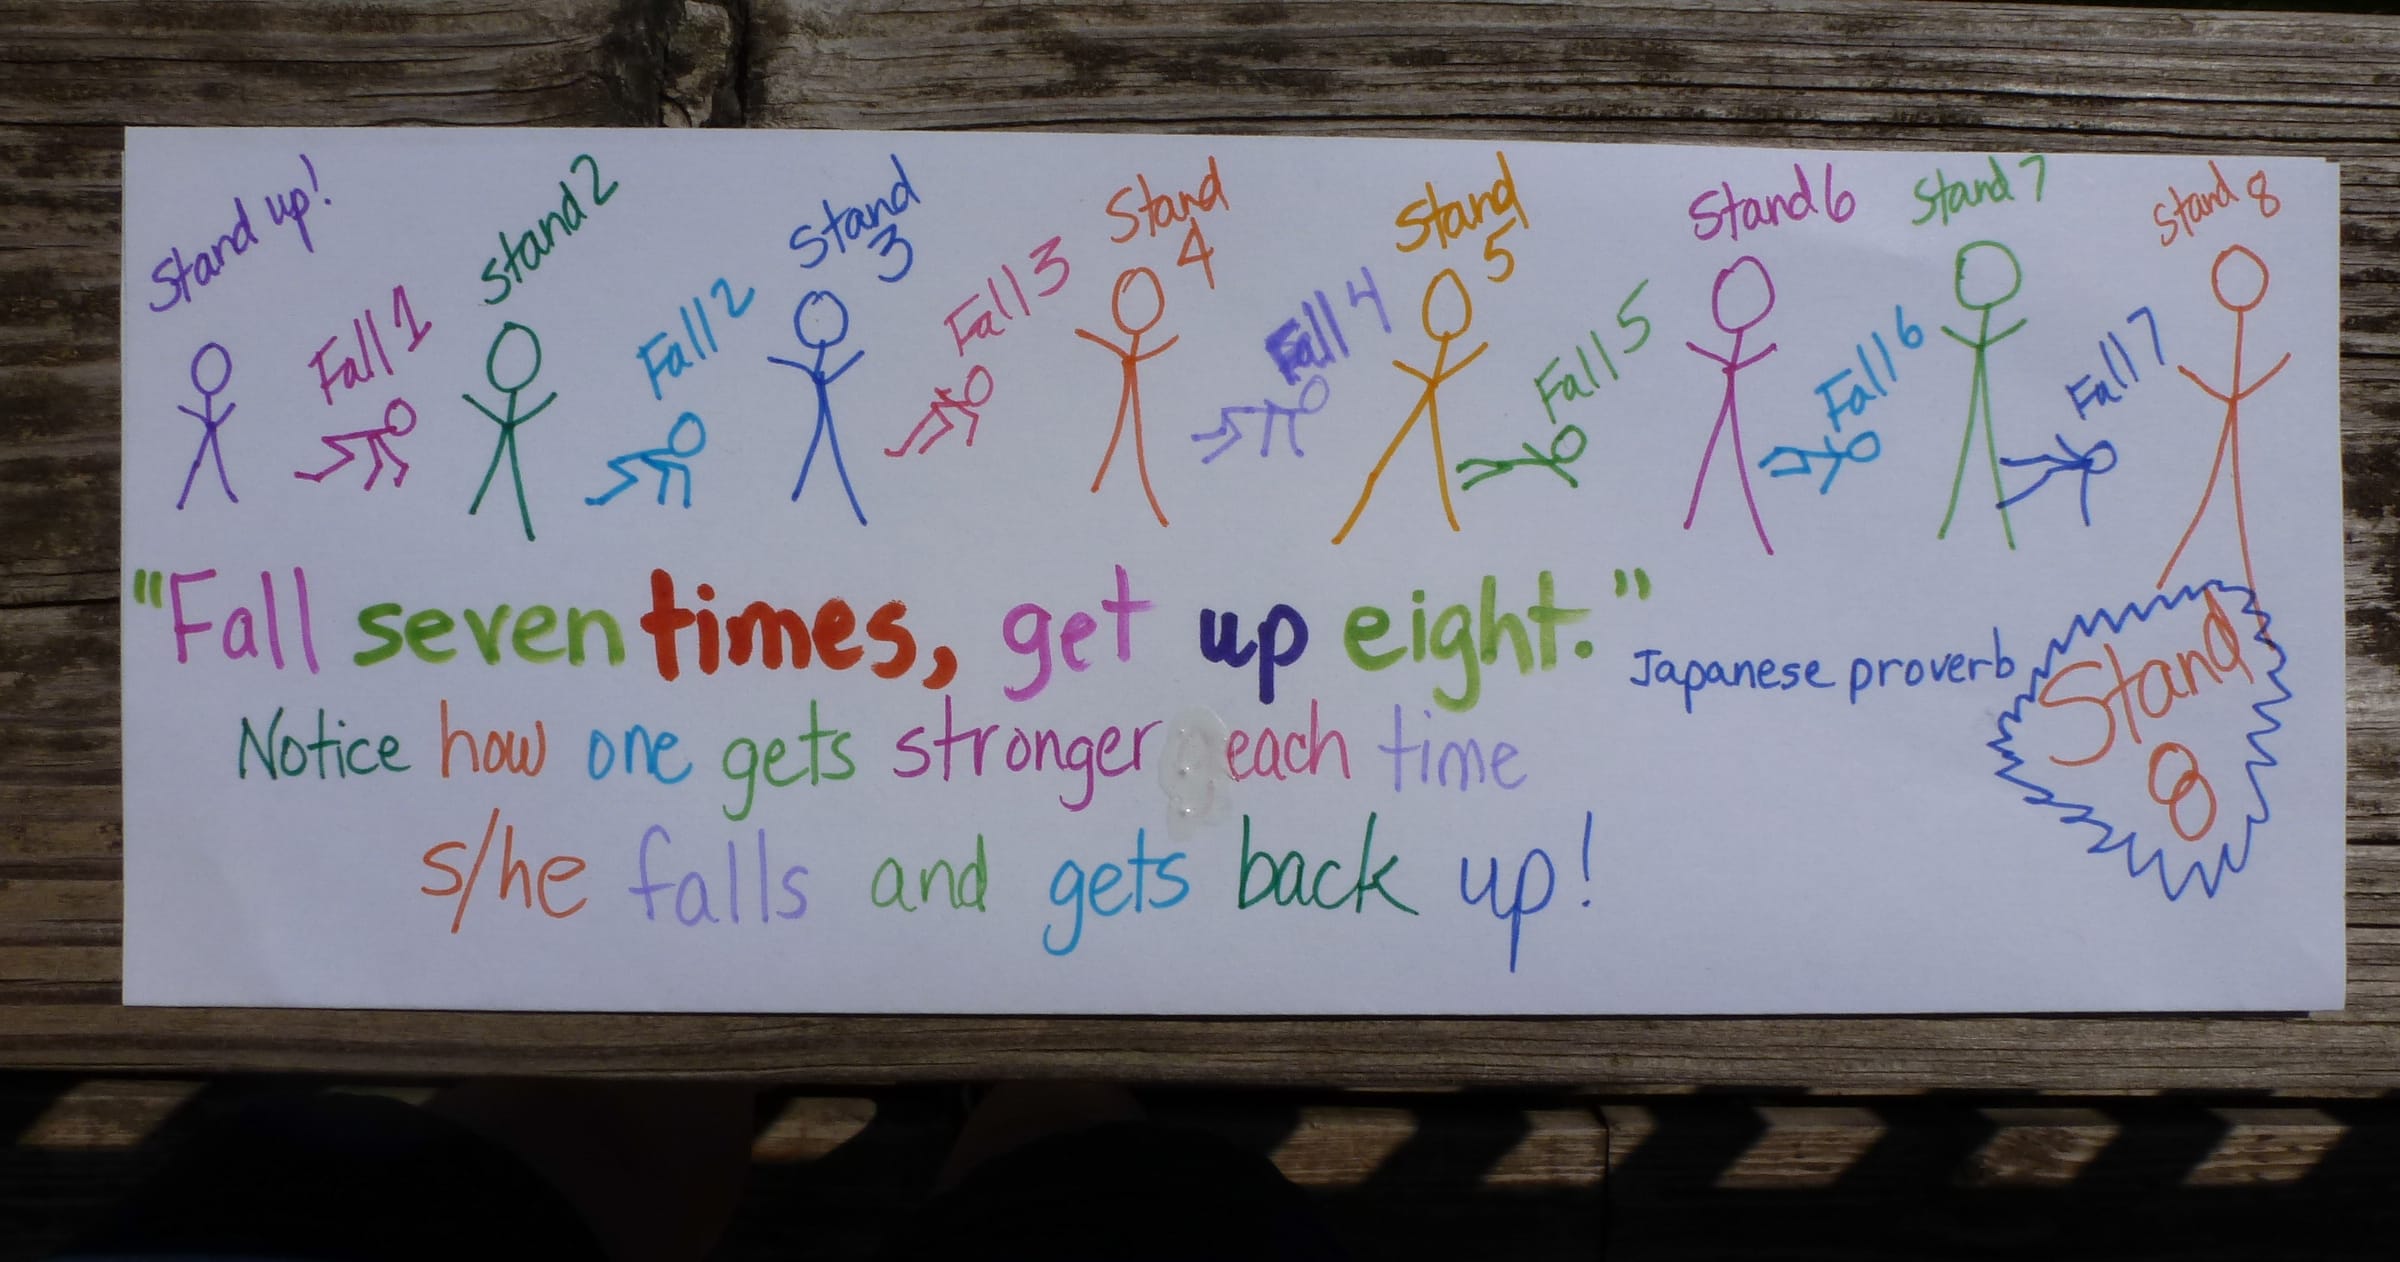 Stand up! Fall 1 Stand 2 Fall 2 Stand 3 Fall 3 Stand 4 Fall 4 Stand 5 Fall 5 Stand 6 Fall 6 Stand 7 Fall 7 Stand 8
"Fall seven times, get up eight." Japanese proverb
Stand
8
Notice how one gets stronger each time
s/he falls and gets back up!